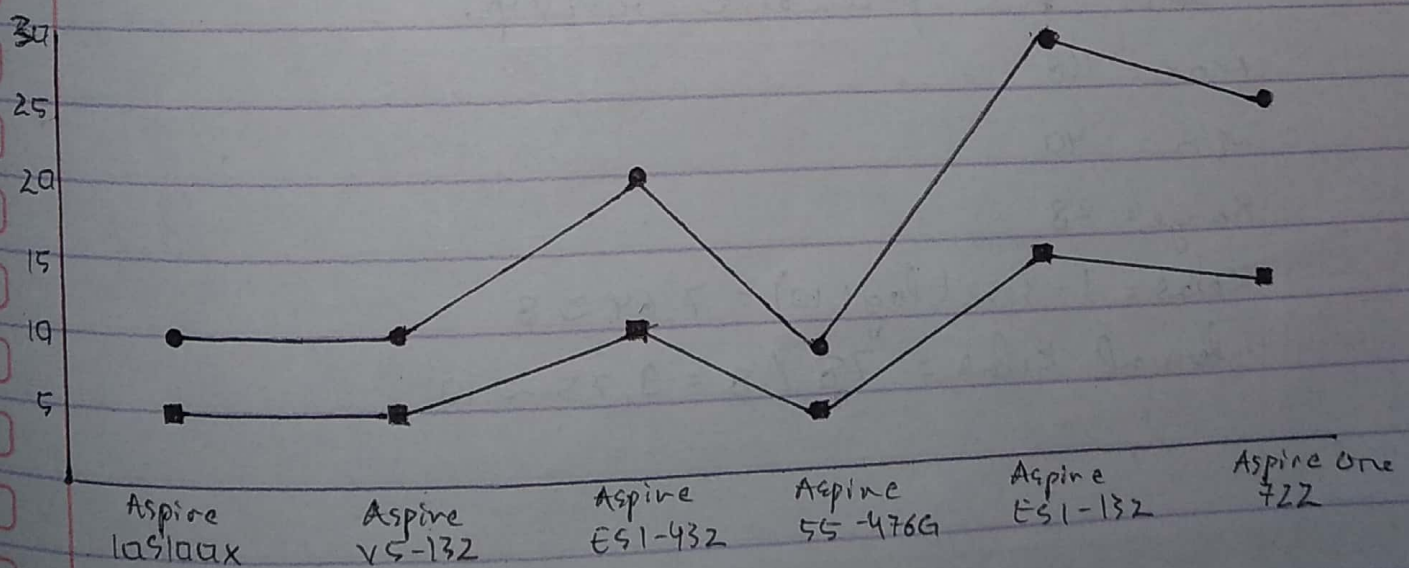 30
25
20
15
10
5
Aspire
1a51aax
Aspire
V5-132
Aspire
ES1-432
Aspire
55-476G
Aspire
ES1-132
Aspire One
722